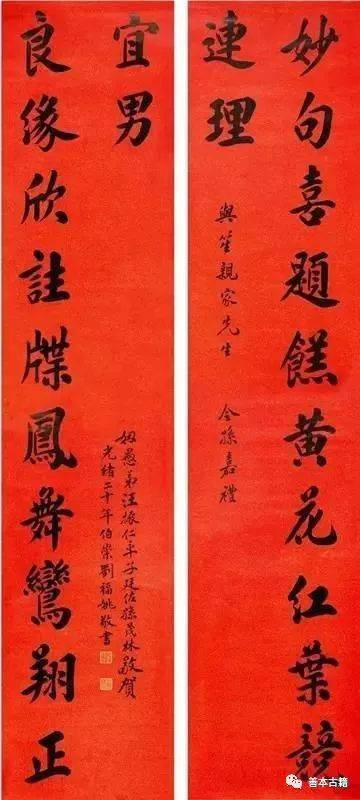 妙句喜題餻黃花紅葉諧
連理
與笙親家先生 令孫嘉禮
良緣欣註牒鳳舞鸞翔正
宜男
姻愚弟汪振仁率子廷佐孫茂林敬賀
光緒二十年伯崇劉福姚敬書
善本古籍